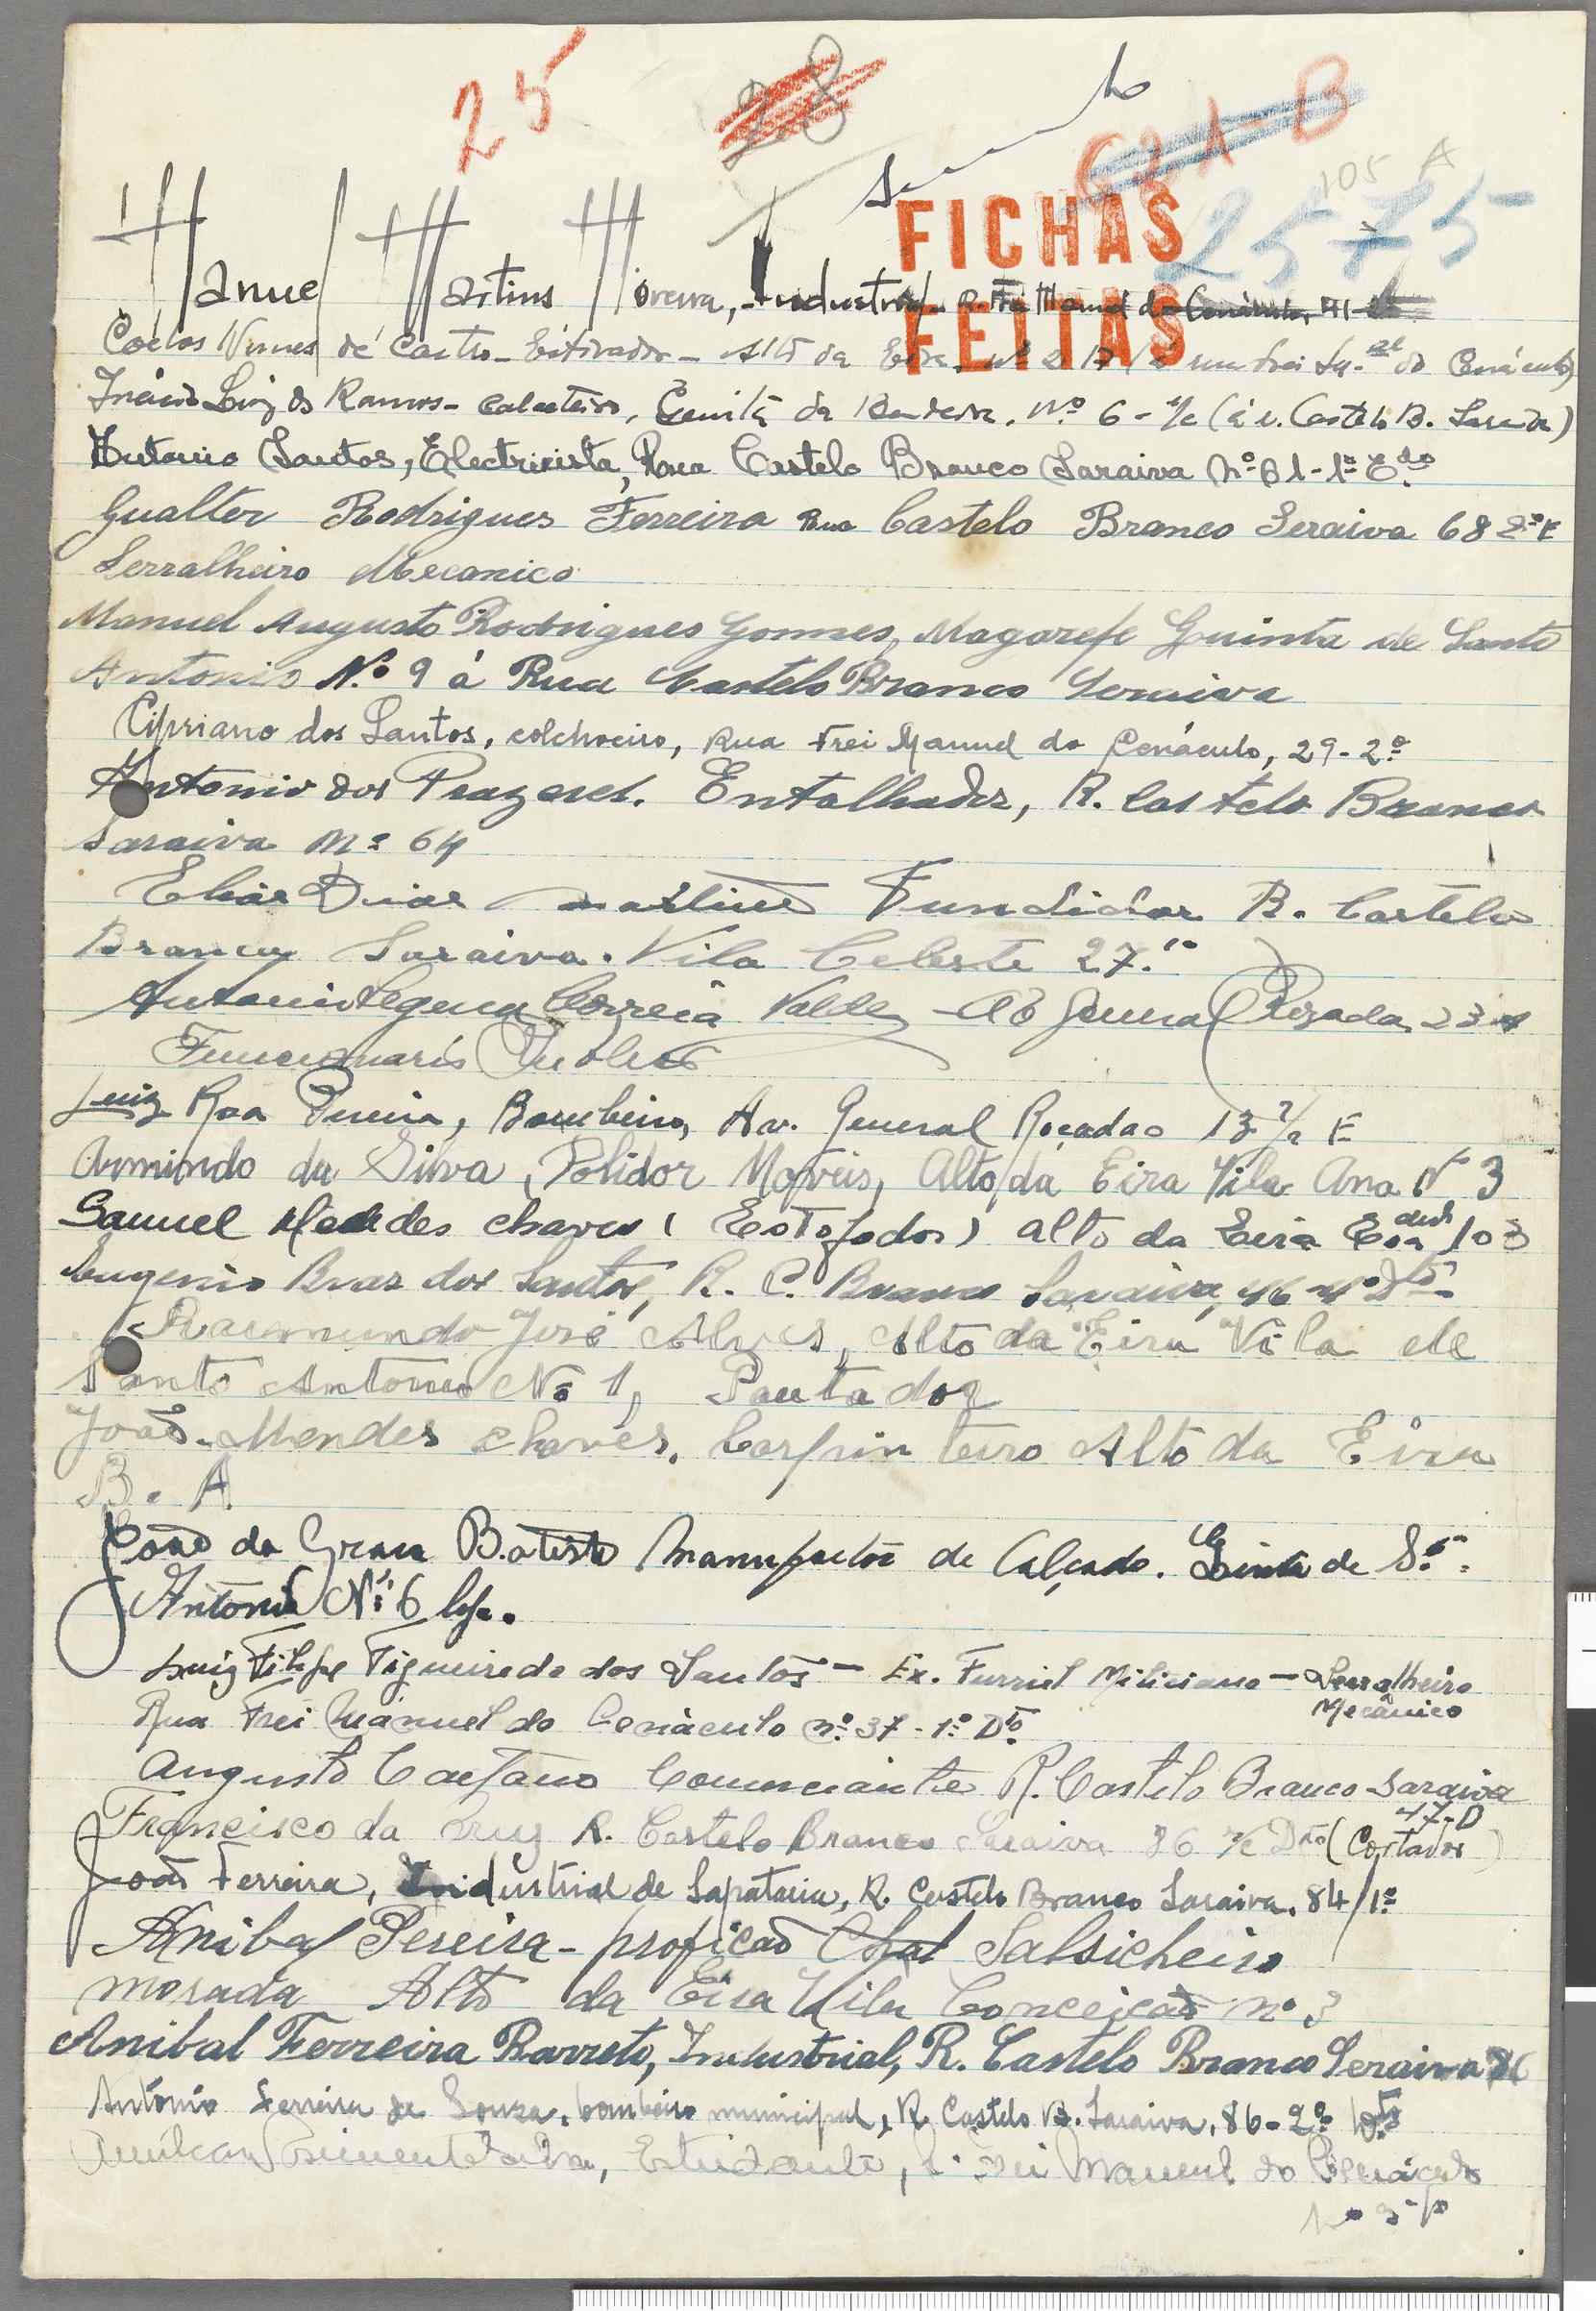 25
28
C2A-B
105 A
2575
FICHAS
FEITAS
Manuel Martins Moreira, Industrial R. Frei Manuel do Cenáculo, 41-
Carlos Nunes de Castro - Estivador - Alto da Eira, nº 2 do Cenáculo)
Inácio Luiz dos Ramos - Calceteiro, da Bandeira, Nº 6 - r/c (à r. Castelo B. Saraiva)
Antonio Santos, Electricista, Rua Castelo Branco Saraiva Nº 61-1º E.do
Gualter Rodrigues Ferreira Rua Castelo Branco Seraiva 68 2º E
Serralheiro Mecanico
Manuel Augusto Rodrigues Gomes, Magarefe Quinta de Santo
Antonio N.º 9 á Rua Castelo Branco Seraiva
Cipriano dos Santos, colchoeiro, Rua Frei Manuel do Cenáculo, 29-2º
Antonio dos Prazeres. Entalhador, R. Castelo Branco
Saraiva Nº 64
Elias Dias Martins Fundidor R. Castelo
Branco Saraiva. Vila Celeste 27.
Antonio Correia Valdez Av General Roçadas 23
Funcionario Publico
Luiz Roa Pereira, Bombeiro, Av. General Roçadas 13 r/c E
Armindo da Silva, Polidor Moveis, Alto da Eira Vila Ana Nº 3
Samuel Mendes chaves (Estofador) alto da Eira 103
Eugenio Braz dos Santos, R. C. Branco Saraiva, 46 4º Dtº
Raemundo José Alves, Alto da Eira Vila de
Santo Antonio Nº 1,
João Mendes chaves, Carpinteiro Alto da Eira
B. A
João da Graca Batista Manufactor de Calçado. Quinta de Stº
Antonio Nº 6 loja.
Luiz Filipe Figueiredo dos Santos - Ex. Furriel Miliciano - Serralheiro
Mecânico
Rua Frei Manuel do Cenáculo nº 37 - 1º Dtº
Augusto Caetano Comerciante R. Castelo Branco Saraiva
47-D
Francisco da Cruz R. Castelo Branco Saraiva 86 r/c Dto (Cortador)
João Ferreira, Industrial de Sapataria, R. Castelo Branco Saraiva, 84/1º
Anibal Pereira - proficão Salsicheiro
morada Alto da Eira Vila Conceicão nº 3
Anibal Ferreira Barreto, Industrial, R. Castelo Branco Seraiva 86
António Ferreira de Souza, bombeiro municipal, R. Castelo B. Saraiva, 86-2º Dto
Amílcar Pimentel, Estudante, R. Frei Manuel do Cenáculo